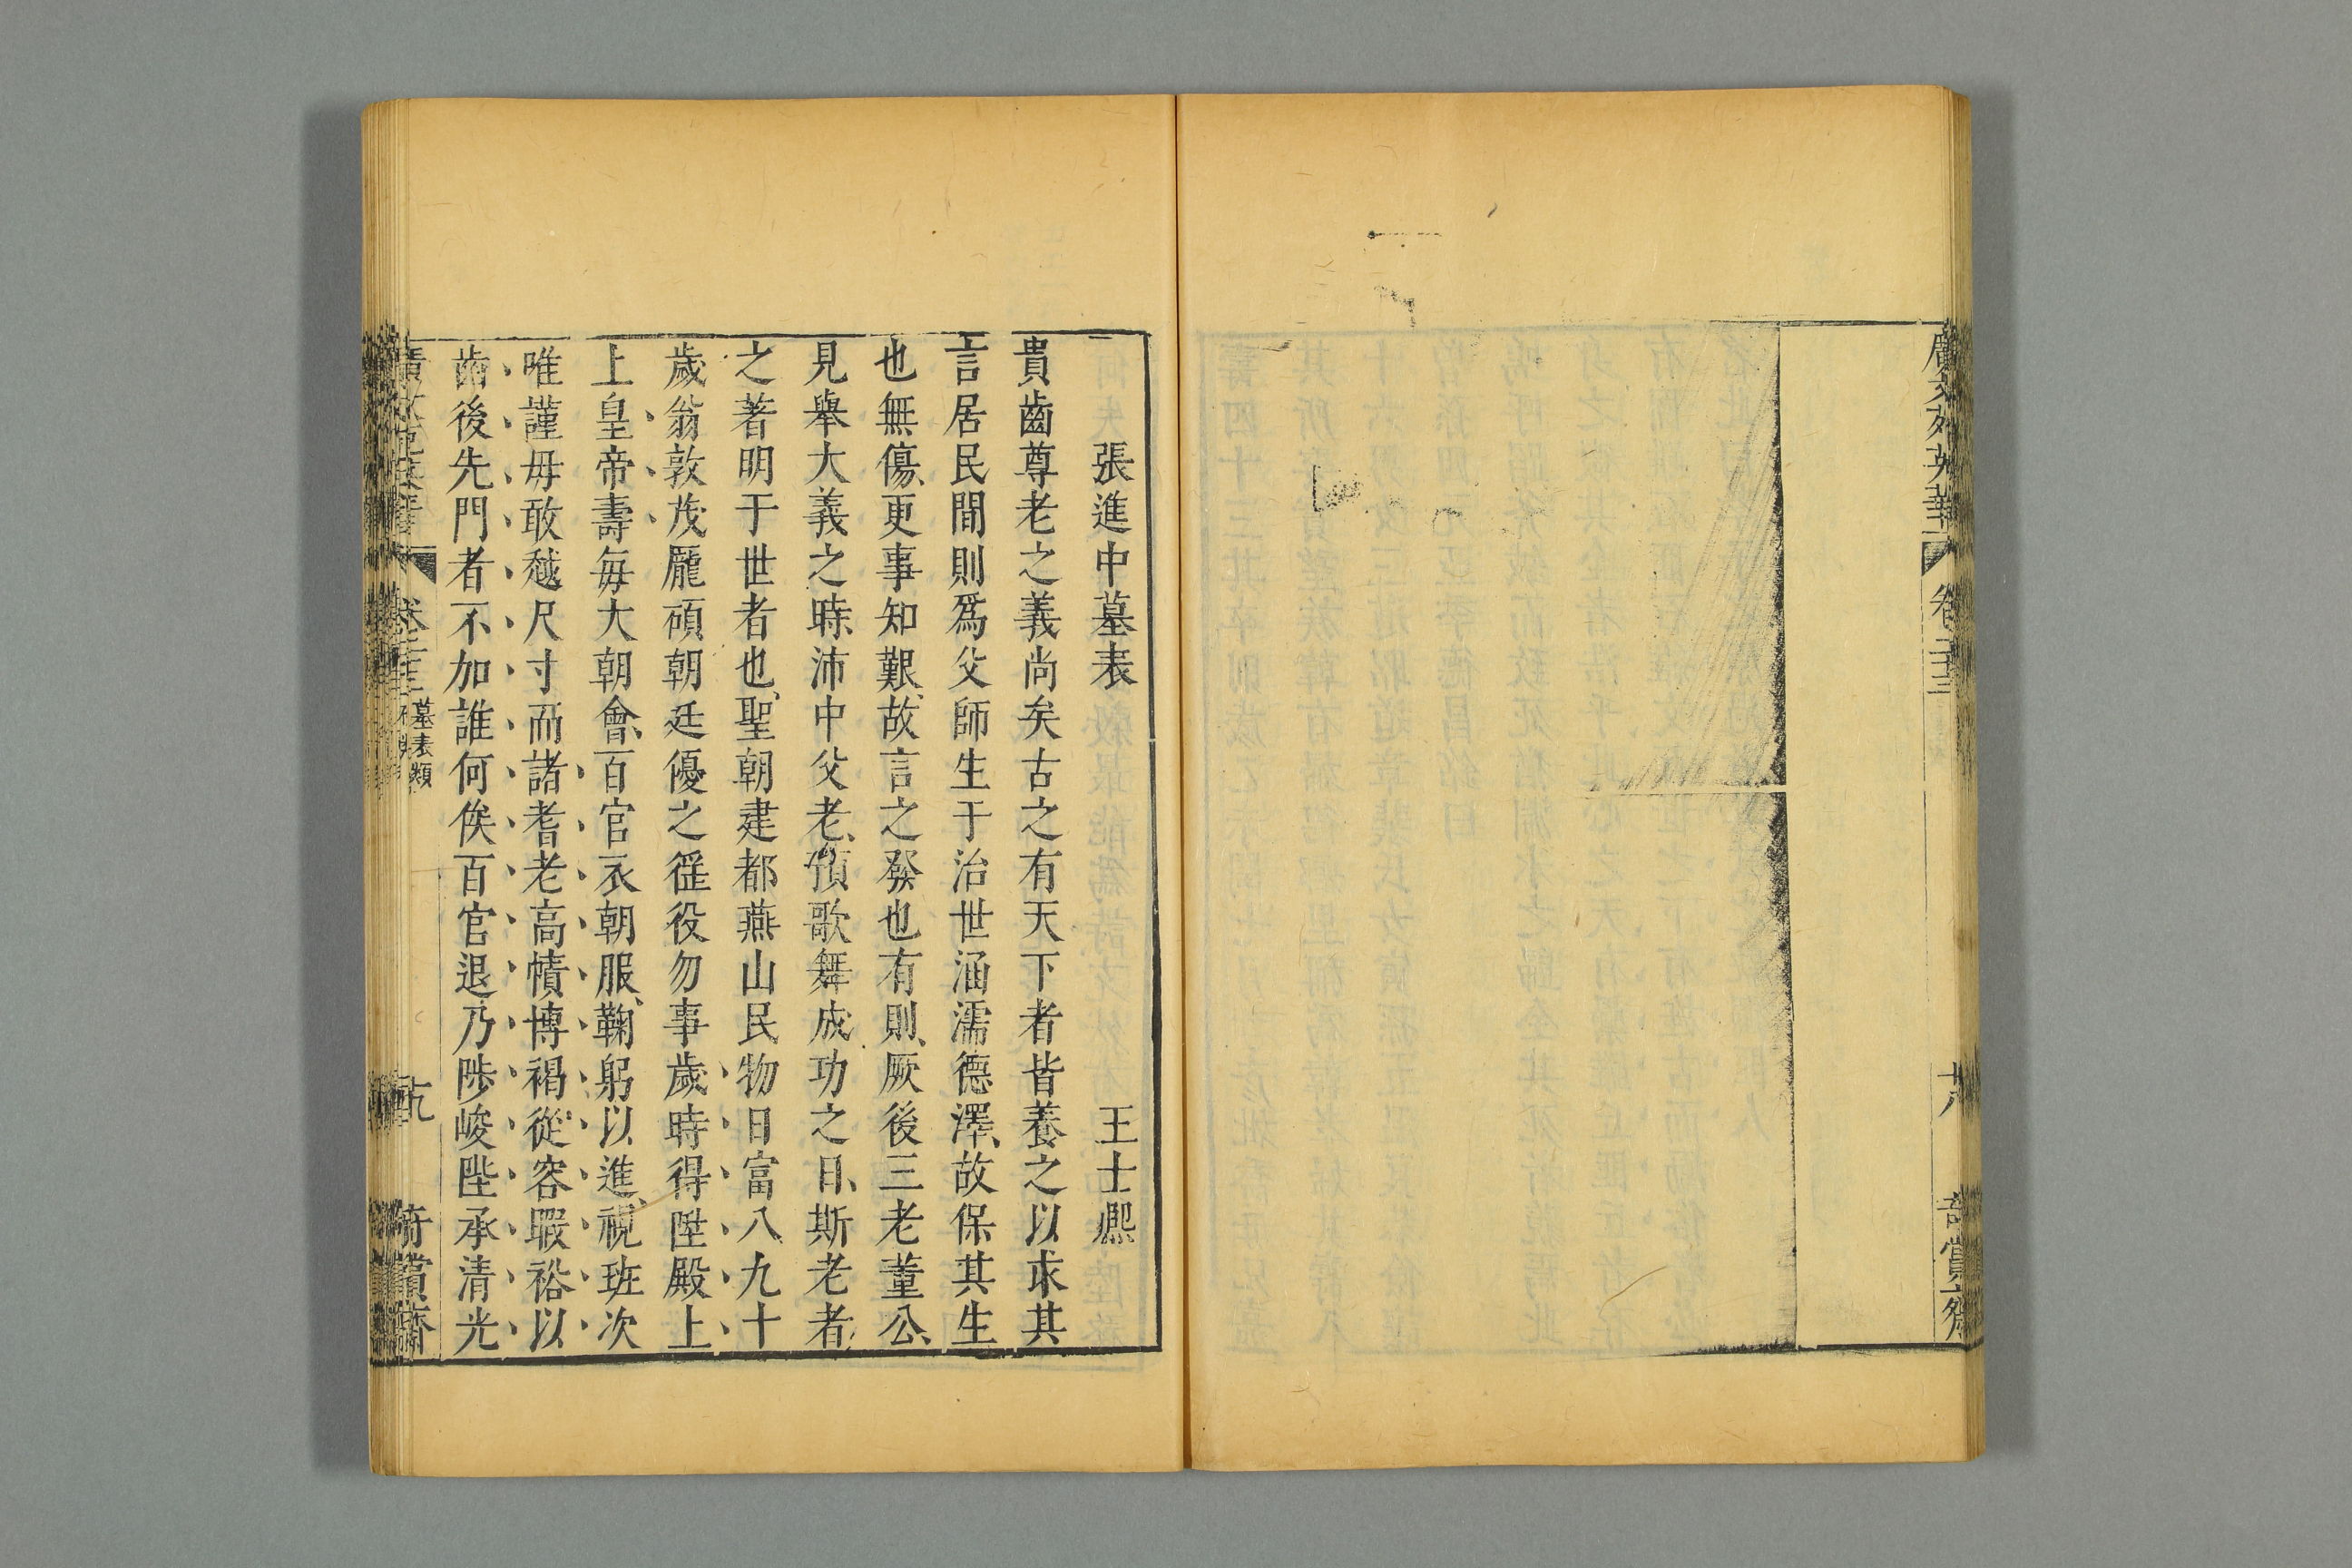 廣文苑英華
卷二十三
十八
奇賞齋
張進中墓表
王士熈
貴齒尊老之義尚矣古之有天下者皆養之以求其
言居民間則爲父師生于治世涵濡德澤、故保其生
也無傷、更事知艱、故言之發也有則、厥後三老董公、
見舉大義之時、沛中父老、預歌舞成功之日、斯老者、
之著明于世者也、聖朝建都燕山民物日富八九十
歲翁敦茂龐碩朝廷優之徭役勿事歲時得陞殿上
上皇帝壽每大朝會、百官衣朝服、鞠躬以進、視班次
唯謹毋敢越尺寸而諸耆老高幘博褐從容暇裕以
齒後先門者不加誰何俟百官退乃陟峻陛承清光
墓表類
奇賞齋